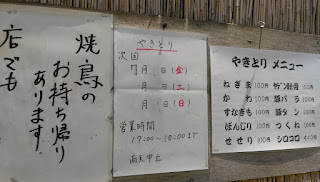 焼鳥の
お持ち帰り
あります
店でも
やきとり
次回
月 日(金)
月 日(土)
月 日(日)
営業時間
17:00〜20:00まで
雨天中止
やきとり メニュー
ねぎま 100円
かわ 100円
すなぎも 100円
ぼんじり 100円
せせり 100円
豚バラ 100円
豚タン 100円
つくね 100円
シロコロ